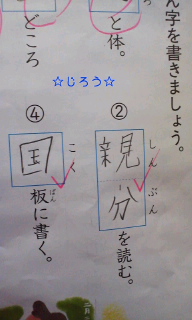 ん字を書きましょう。
と体。
どころ
☆じろう☆
②
しん ぶん
親分を読む。
④
こく ばん
囯板に書く。